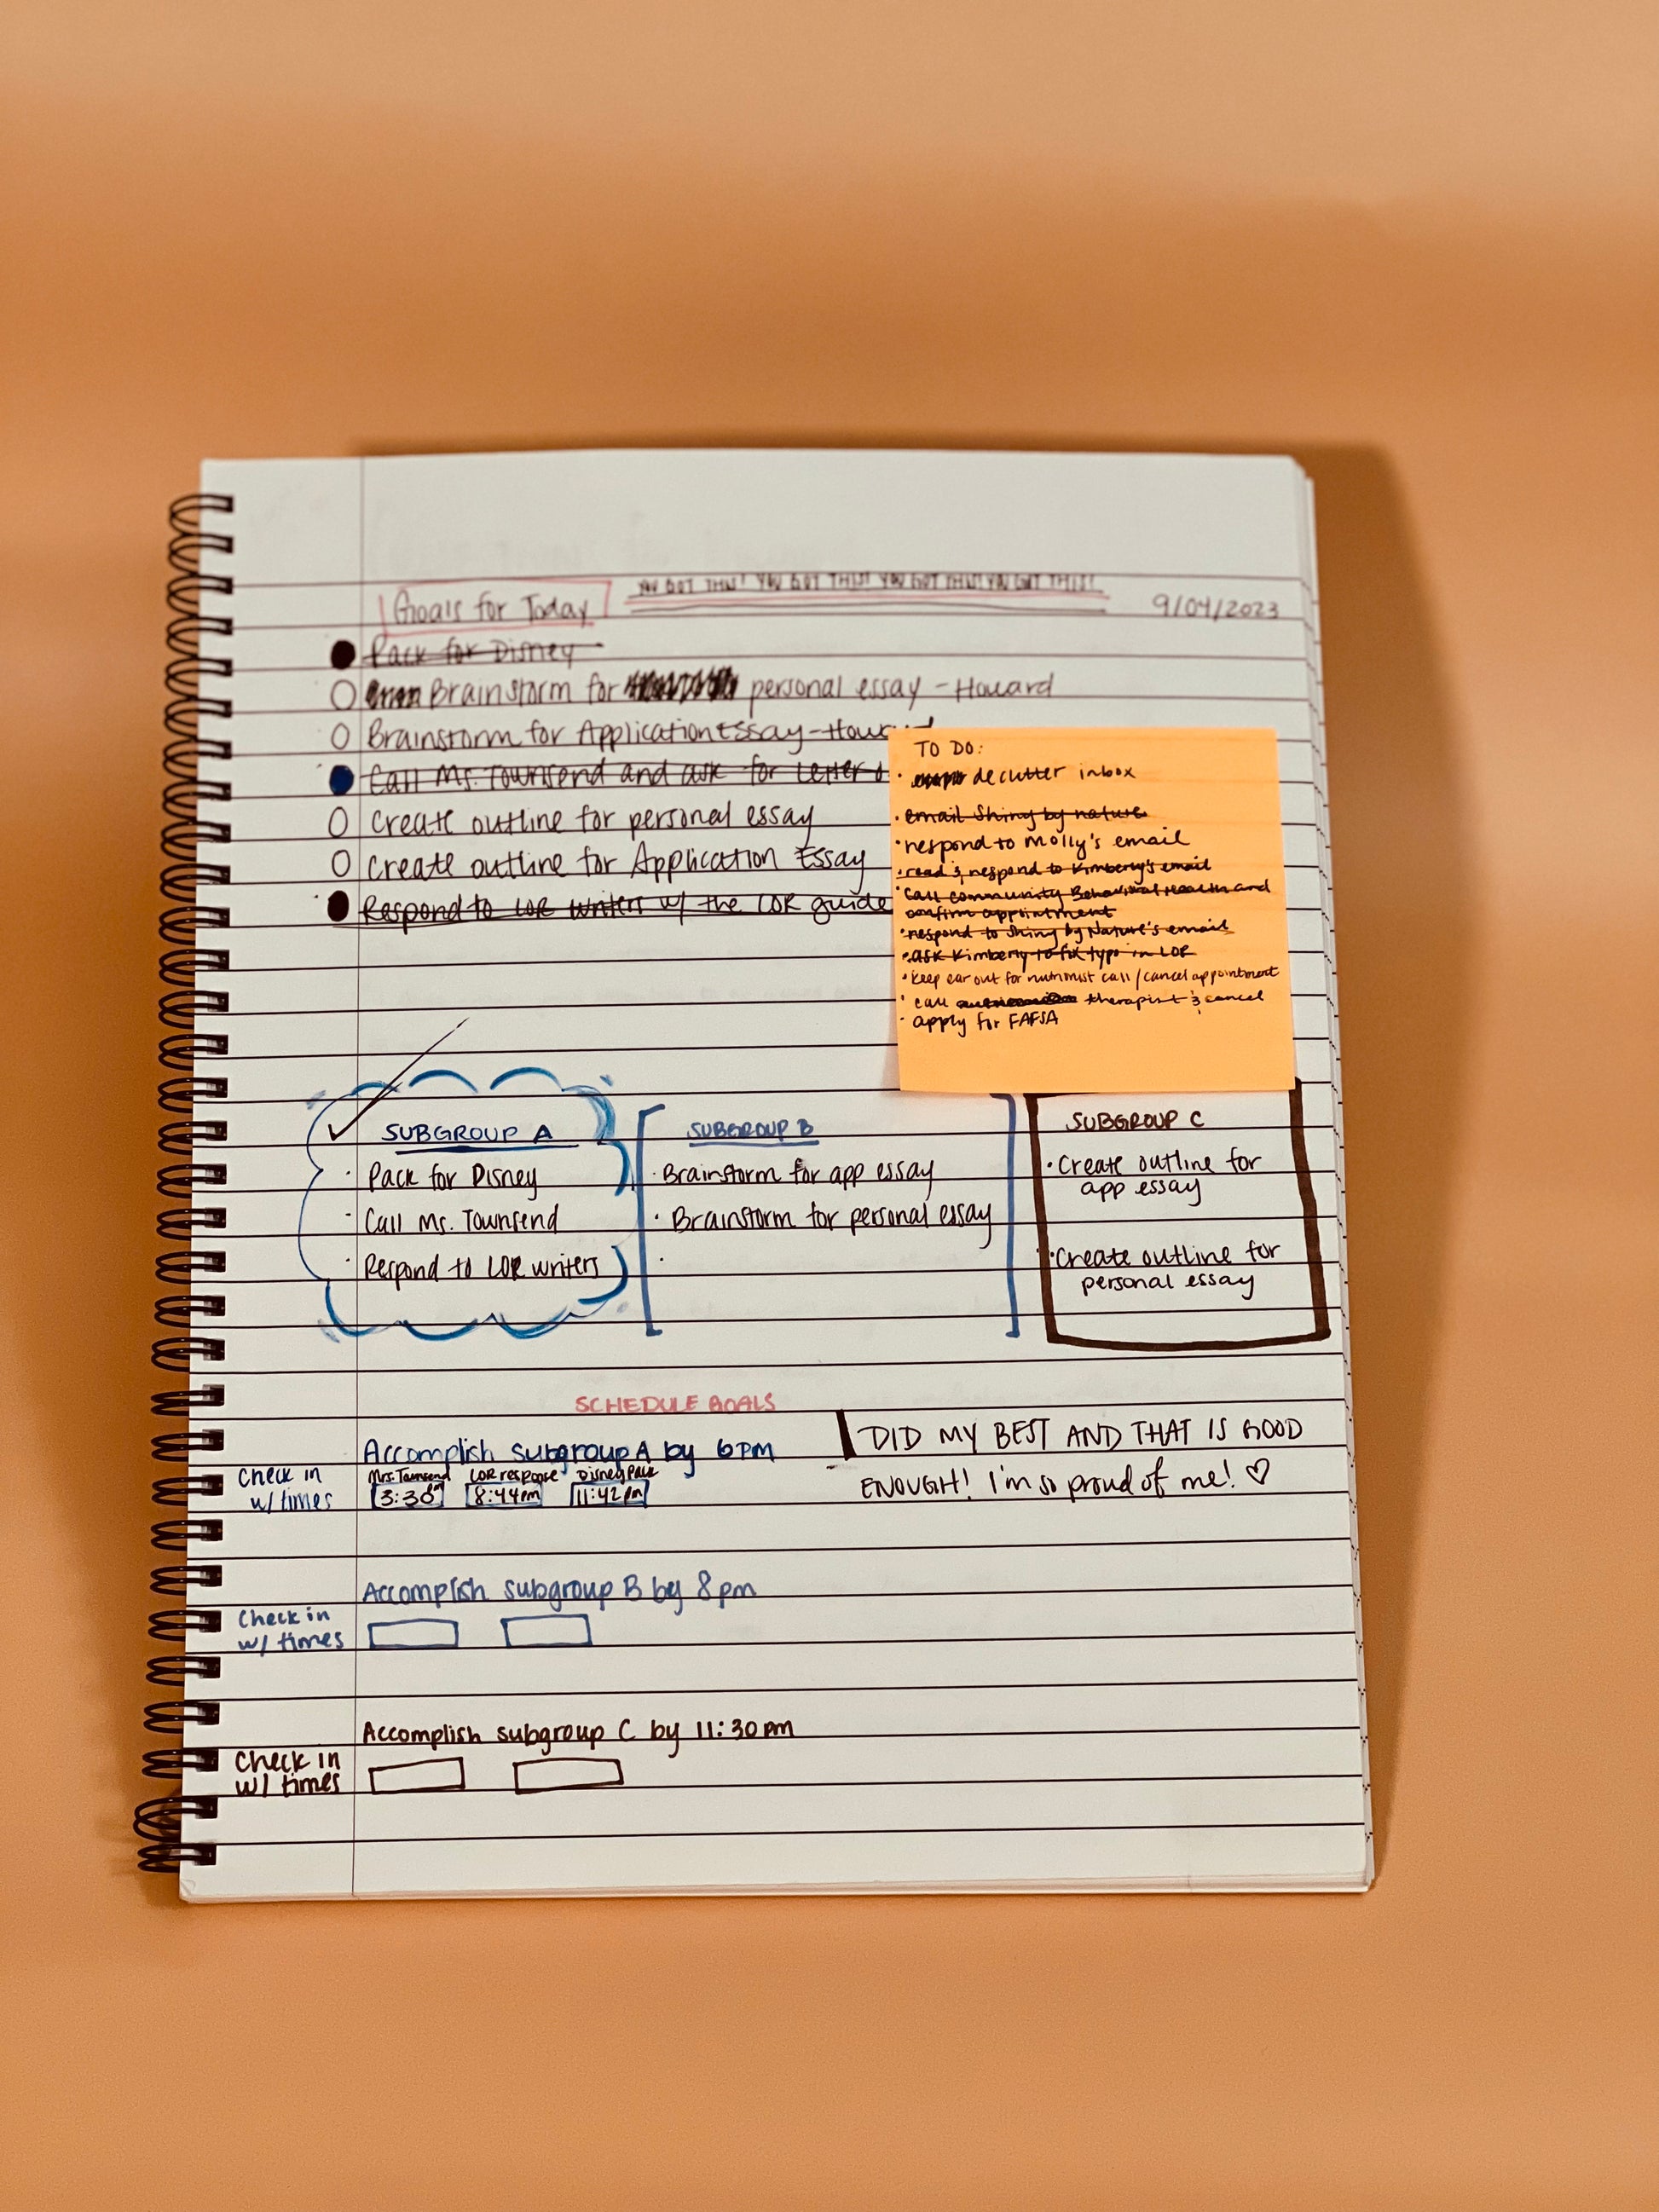 YOU GOT THIS! YOU GOT THIS! YOU GOT THIS! YOU GOT THIS!
Goals for Today
9/04/2023
Pack for Disney
Brainstorm for personal essay - Howard
Brainstorm for Application Essay - Howard
Call Ms. Townsend and ask for Letter o
Create outline for personal essay
Create outline for Application Essay
Respond to LOR writers w/ the LOR guide
TO DO:
· declutter inbox
· email Shiny by nature
· respond to Molly's email
· read & respond to Kimberly's email
· call community Behavioral Health and
confirm appointment
· respond to Shiny by Nature's email
· ask Kimberly to fix typo in LOR
· keep ear out for nutritionist call / cancel appointment
· call therapist & cancel
· apply for FAFSA
SUBGROUP A
· Pack for Disney
· Call Ms. Townsend
· Respond to LOR writers
SUBGROUP B
· Brainstorm for app essay
· Brainstorm for personal essay
·
SUBGROUP C
· Create outline for
app essay
· Create outline for
personal essay
SCHEDULE GOALS
Accomplish subgroup A by 6PM
Check in
w/ times
Mrs. Townsend LOR response Disney Pack
3:30pm 8:44pm 11:42pm
DID MY BEST AND THAT IS GOOD
ENOUGH! I'm so proud of me! ♡
Accomplish subgroup B by 8pm
Check in
w/ times
Accomplish subgroup C by 11:30pm
Check in
w/ times